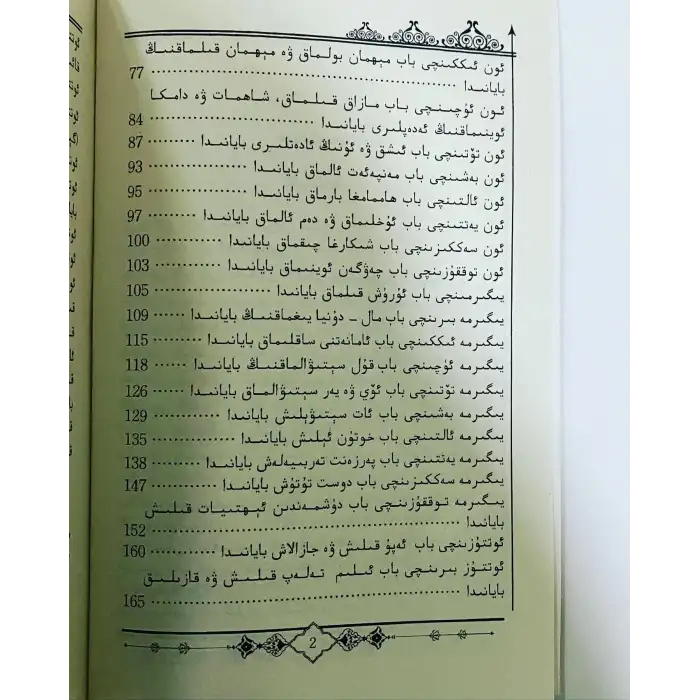 ئون ئىككىنچى باب مېھمان بولماق ۋە مېھمان قىلماقنىڭ
بايانىدا ································ 77
ئون ئۈچىنچى باب مازاق قىلماق، شاھمات ۋە دامكا
ئوينىماقنىڭ ئەدەپلىرى بايانىدا ················ 84
ئون تۆتىنچى باب ئىشق ۋە ئۇنىڭ ئادەتلىرى بايانىدا ······ 87
ئون بەشىنچى باب مەنپەئەت ئالماق بايانىدا ············ 93
ئون ئالتىنچى باب ھاممامغا بارماق بايانىدا ············ 95
ئون يەتتىنچى باب ئۇخلىماق ۋە دەم ئالماق بايانىدا ······ 97
ئون سەككىزىنچى باب شىكارغا چىقماق بايانىدا ·········· 100
ئون توققۇزىنچى باب چەۋگەن ئوينىماق بايانىدا ·········· 103
يىگىرمىنچى باب ئۇرۇش قىلماق بايانىدا ·············· 105
يىگىرمە بىرىنچى باب مال - دۇنيا يىغماقنىڭ بايانىدا ······ 109
يىگىرمە ئىككىنچى باب ئامانەتنى ساقلىماق بايانىدا ······ 115
يىگىرمە ئۈچىنچى باب قۇل سېتىۋالماقنىڭ بايانىدا ······ 118
يىگىرمە تۆتىنچى باب ئۆي ۋە يەر سېتىۋالماق بايانىدا ······ 126
يىگىرمە بەشىنچى باب ئات سېتىۋېلىش بايانىدا ·········· 129
يىگىرمە ئالتىنچى باب خوتۇن ئېلىش بايانىدا ············ 135
يىگىرمە يەتتىنچى باب پەرزەنت تەربىيەلەش بايانىدا ······ 138
يىگىرمە سەككىزىنچى باب دوست تۇتۇش بايانىدا ·········· 147
يىگىرمە توققۇزىنچى باب دۈشمەندىن ئېھتىيات قىلىش
بايانىدا ································ 152
ئوتتۇزىنچى باب ئەپۇ قىلىش ۋە جازالاش بايانىدا ·········· 160
ئوتتۇز بىرىنچى باب ئىلىم تەلەپ قىلىش ۋە قازىلىق
بايانىدا ································ 165
2